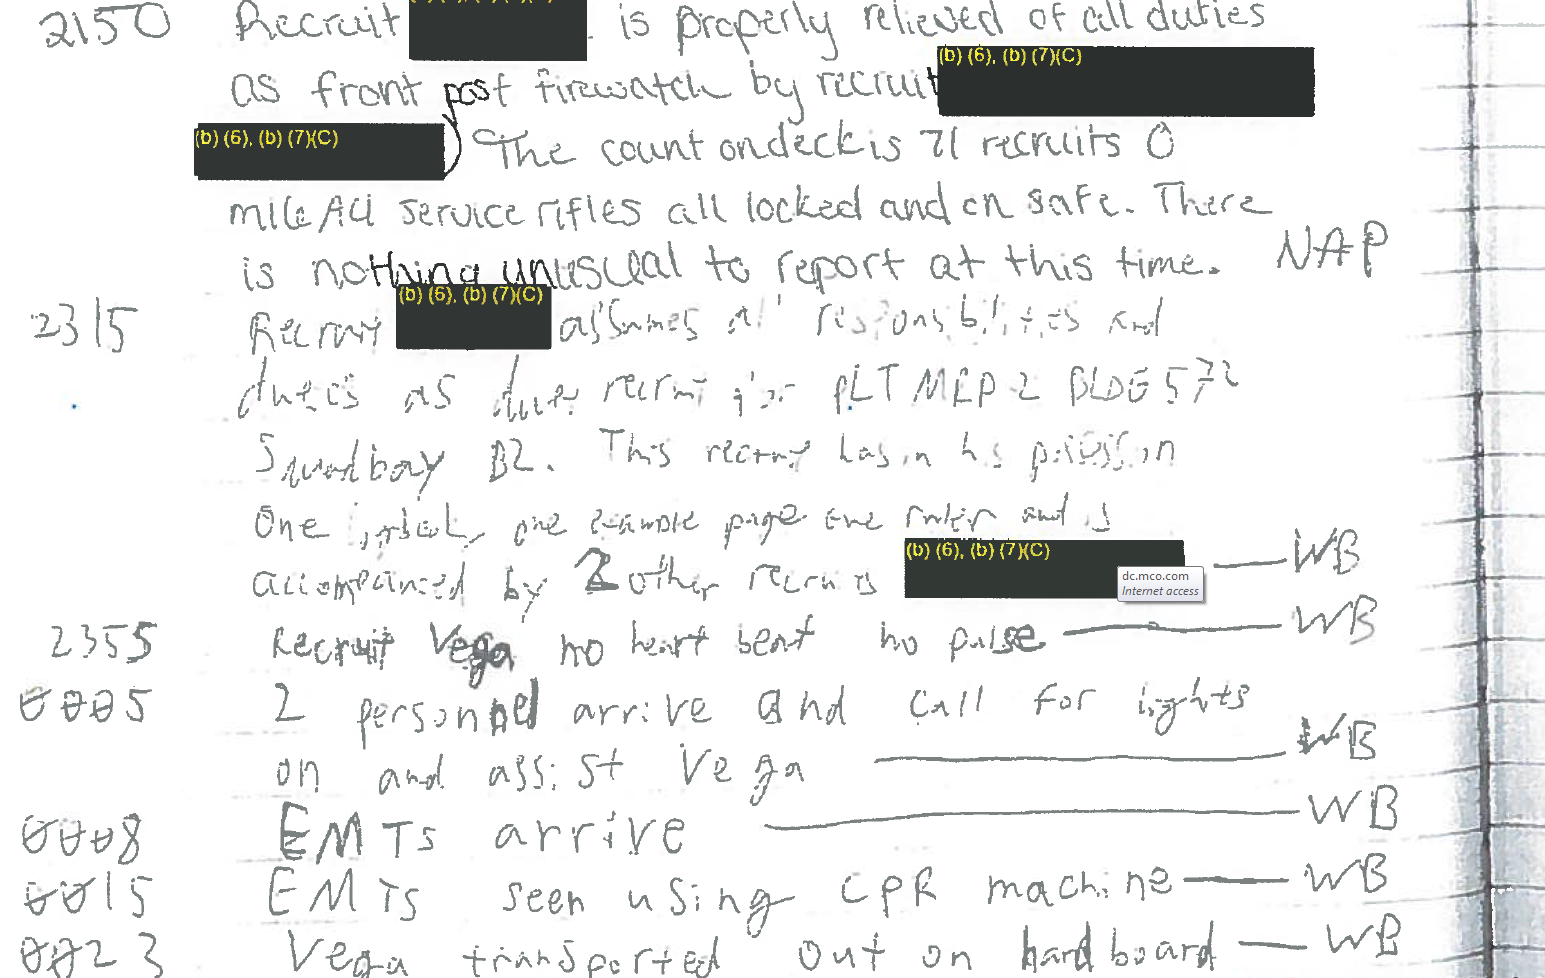 2150 Recruit . is properly relieved of all duties
(b) (6), (b) (7)(C)
as front post firewatch by recruit
(b) (6), (b) (7)(C)
The count ondeck is 71 recruits 0
service rifles all locked and on safe. There
is nothing unusual to report at this time. NAP
(b) (6), (b) (7)(C)
2315 Recruit assumes all responsibilities and
duties as duty recruit for PLT MRP-2 BLDG 572
Squadbay B2. This recruit has in his possession
One one example page one ruler and is
(b) (6), (b) (7)(C)
accompanied by 2 other recruits WB
dc.mco.com
Internet access
2355 Recruit Vega no heart beat no pulse WB
0005 2 personnel arrive and call for lights
on and assist Vega WB
0008 EMTs arrive WB
0015 EMTs seen using CPR machine WB
0023 Vega transported out on hard board WB